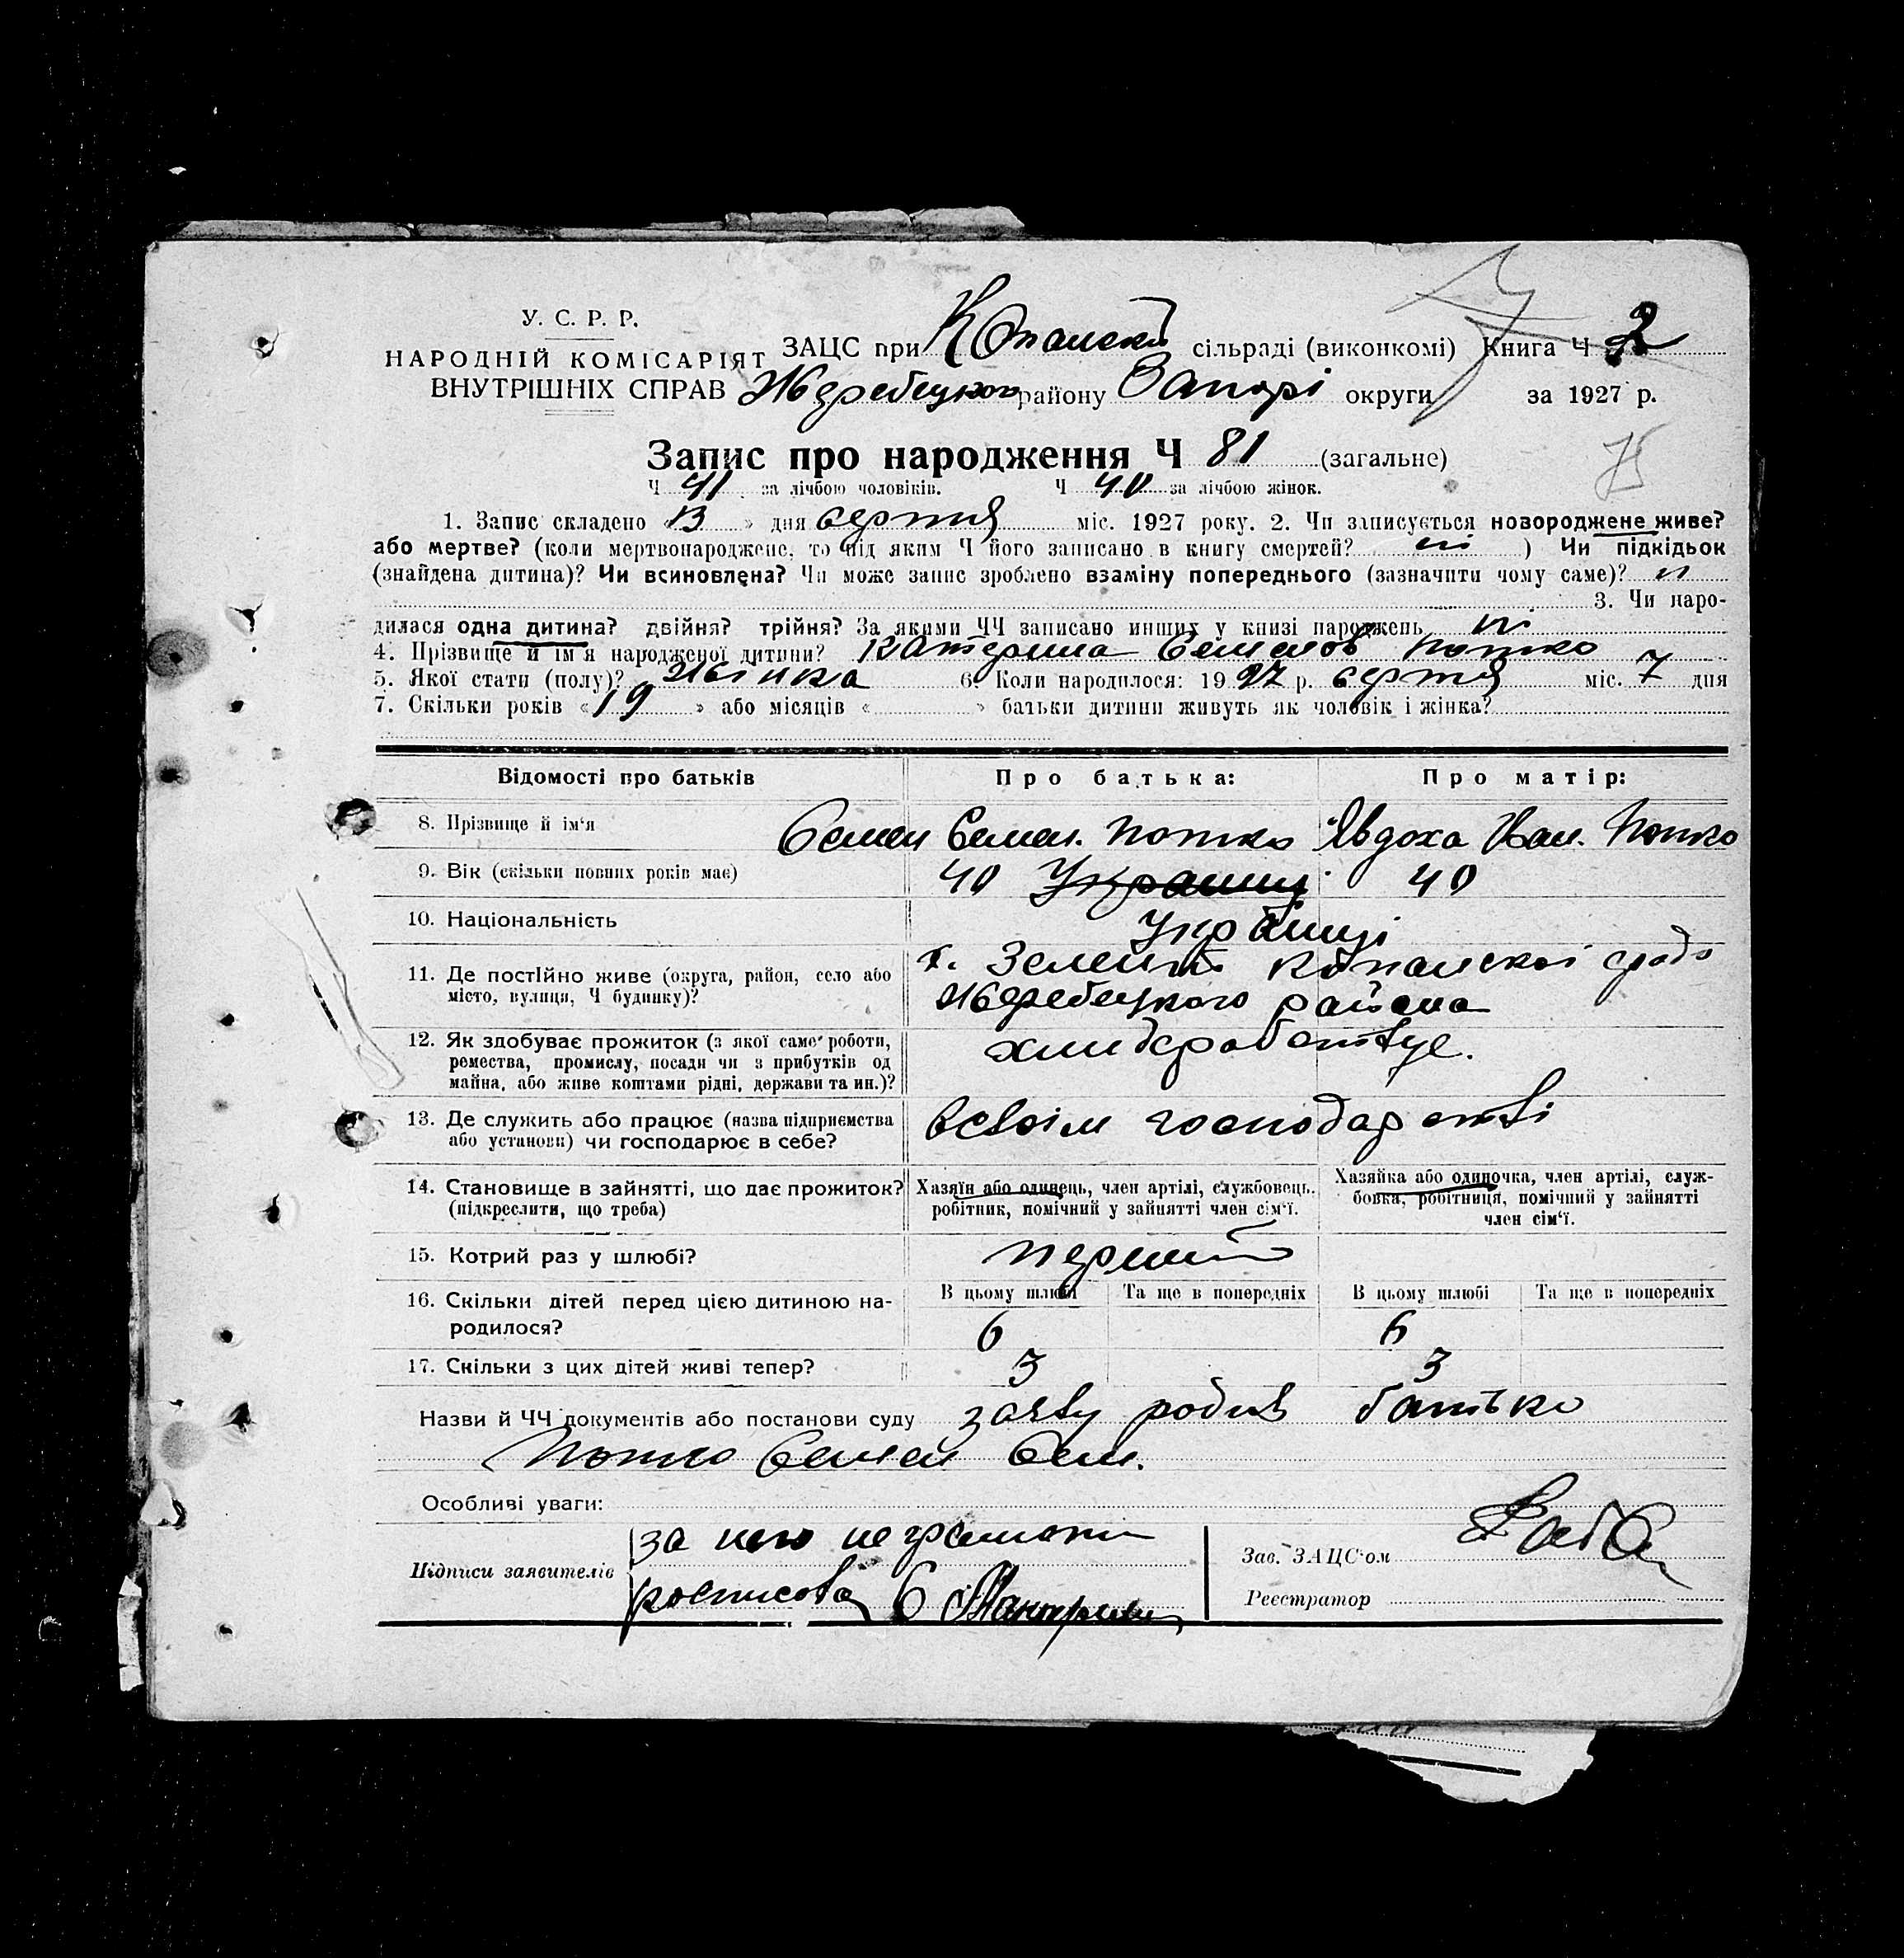 У. С. Р. Р.
НАРОДНІЙ КОМІСАРІЯТ
ВНУТРІШНІХ СПРАВ
ЗАЦС при Копанській сільраді (виконкомі) Книга Ч 2
Жеребецкого району Запорі округи за 1927 р.
Запис про народження Ч 81 (загальне)
Ч 41 за лічбою чоловіків. Ч 40 за лічбою жінок.
75
1. Запис складено « 13 » дня серпня міс. 1927 року. 2. Чи записується новороджене живе?
або мертве? (коли мертвонароджене, то під яким Ч його записано в книгу смертей? ні ) Чи підкідьок
(знайдена дитина)? Чи всиновлена? Чи може запис зроблено взаміну попереднього (зазначити чому саме)? н
3. Чи наро-
дилася одна дитина? двійня? трійня? За якими ЧЧ записано инших у книзі народжень ні
4. Прізвище й ім'я народженої дитини? Катерина Семенов Потко
5. Якої стати (полу)? Жінка 6. Коли народилося: 1927 р. серпня міс. 7 дня
7. Скільки років « 19 » або місяців « » батьки дитини живуть як чоловік і жінка?
Відомості про батьків Про батька: Про матір:
8. Прізвище й ім'я Семен Семен. Потко Явдоха Иван. Потко
9. Вік (скільки повних років має) 40 Украинці 40
10. Національність Українці
11. Де постійно живе (округа, район, село або х. Зелений Копанскоі сради
місто, вулиця, Ч будинку)? Жеребецкого района
12. Як здобуває прожиток (з якої саме роботи,
ремества, промислу, посади чи з прибутків од
майна, або живе коштами рідні, держави та ин.)?
13. Де служить або працює (назва підприємства всвоім господарстві
або установи) чи господарює в себе?
14. Становище в зайнятті, що дає прожиток? Хазяїн або одинець, член артілі, службовець, Хазяйка або одиночка, член артілі, служ-
(підкреслити, що треба) робітник, помічний у зайнятті член сім'ї. бовка, робітниця, помічний у зайнятті
член сім'ї.
15. Котрий раз у шлюбі? перший
16. Скільки дітей перед цією дитиною на- В цьому шлюбі Та ще в попередніх В цьому шлюбі Та ще в попередніх
родилося? 6 6
17. Скільки з цих дітей живі тепер? 3 3
Назви й ЧЧ документів або постанови суду заяву робив батько
Потко Семен Сем.
Особливі уваги:
Підписи заявителів за него неграмотн
росписова С
Зав. ЗАЦС'ом
Реєстратор